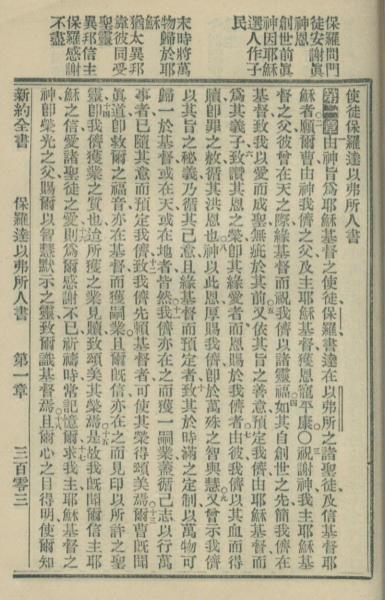 保羅問門
徒安謝真
神恩
創世前真
神因耶穌
選人作子
民
末時將萬
物歸於耶
穌
猶太異邦
靠彼同受
聖靈
異邦信主
保羅感謝
不盡
使徒保羅達以弗所人書
第一章由神旨爲耶穌基督之使徒保羅書達在以弗所之諸聖徒及信基督
穌者願爾曹由神我儕之父及主耶穌基督獲恩寵平康○祝謝神我主耶穌基
督之父彼曾在天之際緣基督而祝我儕以諸靈福如其自創世之先簡我儕在
基督致我以愛而成聖無疵於其前又依其旨之善意預定我儕由耶穌基督而
爲其義子致讚其恩之榮即其緣愛者而恩賜於我儕者由彼我儕以其血而得
贖即罪之赦循其洪恩也神以此恩厚賜我儕即於萬殊之智與慧又曾示我儕
以其旨之秘義乃循其己意且緣基督而預定者致其於時滿之定制以萬物可
歸一於基督或在天或在地者皆然我儕亦在之而獲一嗣業蓋循己志以行萬
事者已隨其意而預定我儕致我儕先賴基督者可使其榮得頌美焉爾曹既聞
眞道即救爾之福音亦在基督而獲嗣業且爾既信亦在之而見印以所許之聖
靈即我儕獲業之質也迨所獲之業見贖致頌美其榮焉是故我既聞爾信主耶
穌之信愛諸聖徒之愛則爲爾感謝不已祈禱時常記憶爾求我主耶穌基督之
神即榮光之父賜爾以智慧默示之靈致爾識基督焉且爾心之目得明使爾知
新約全書 保羅達以弗所人書 第一章 三百零三